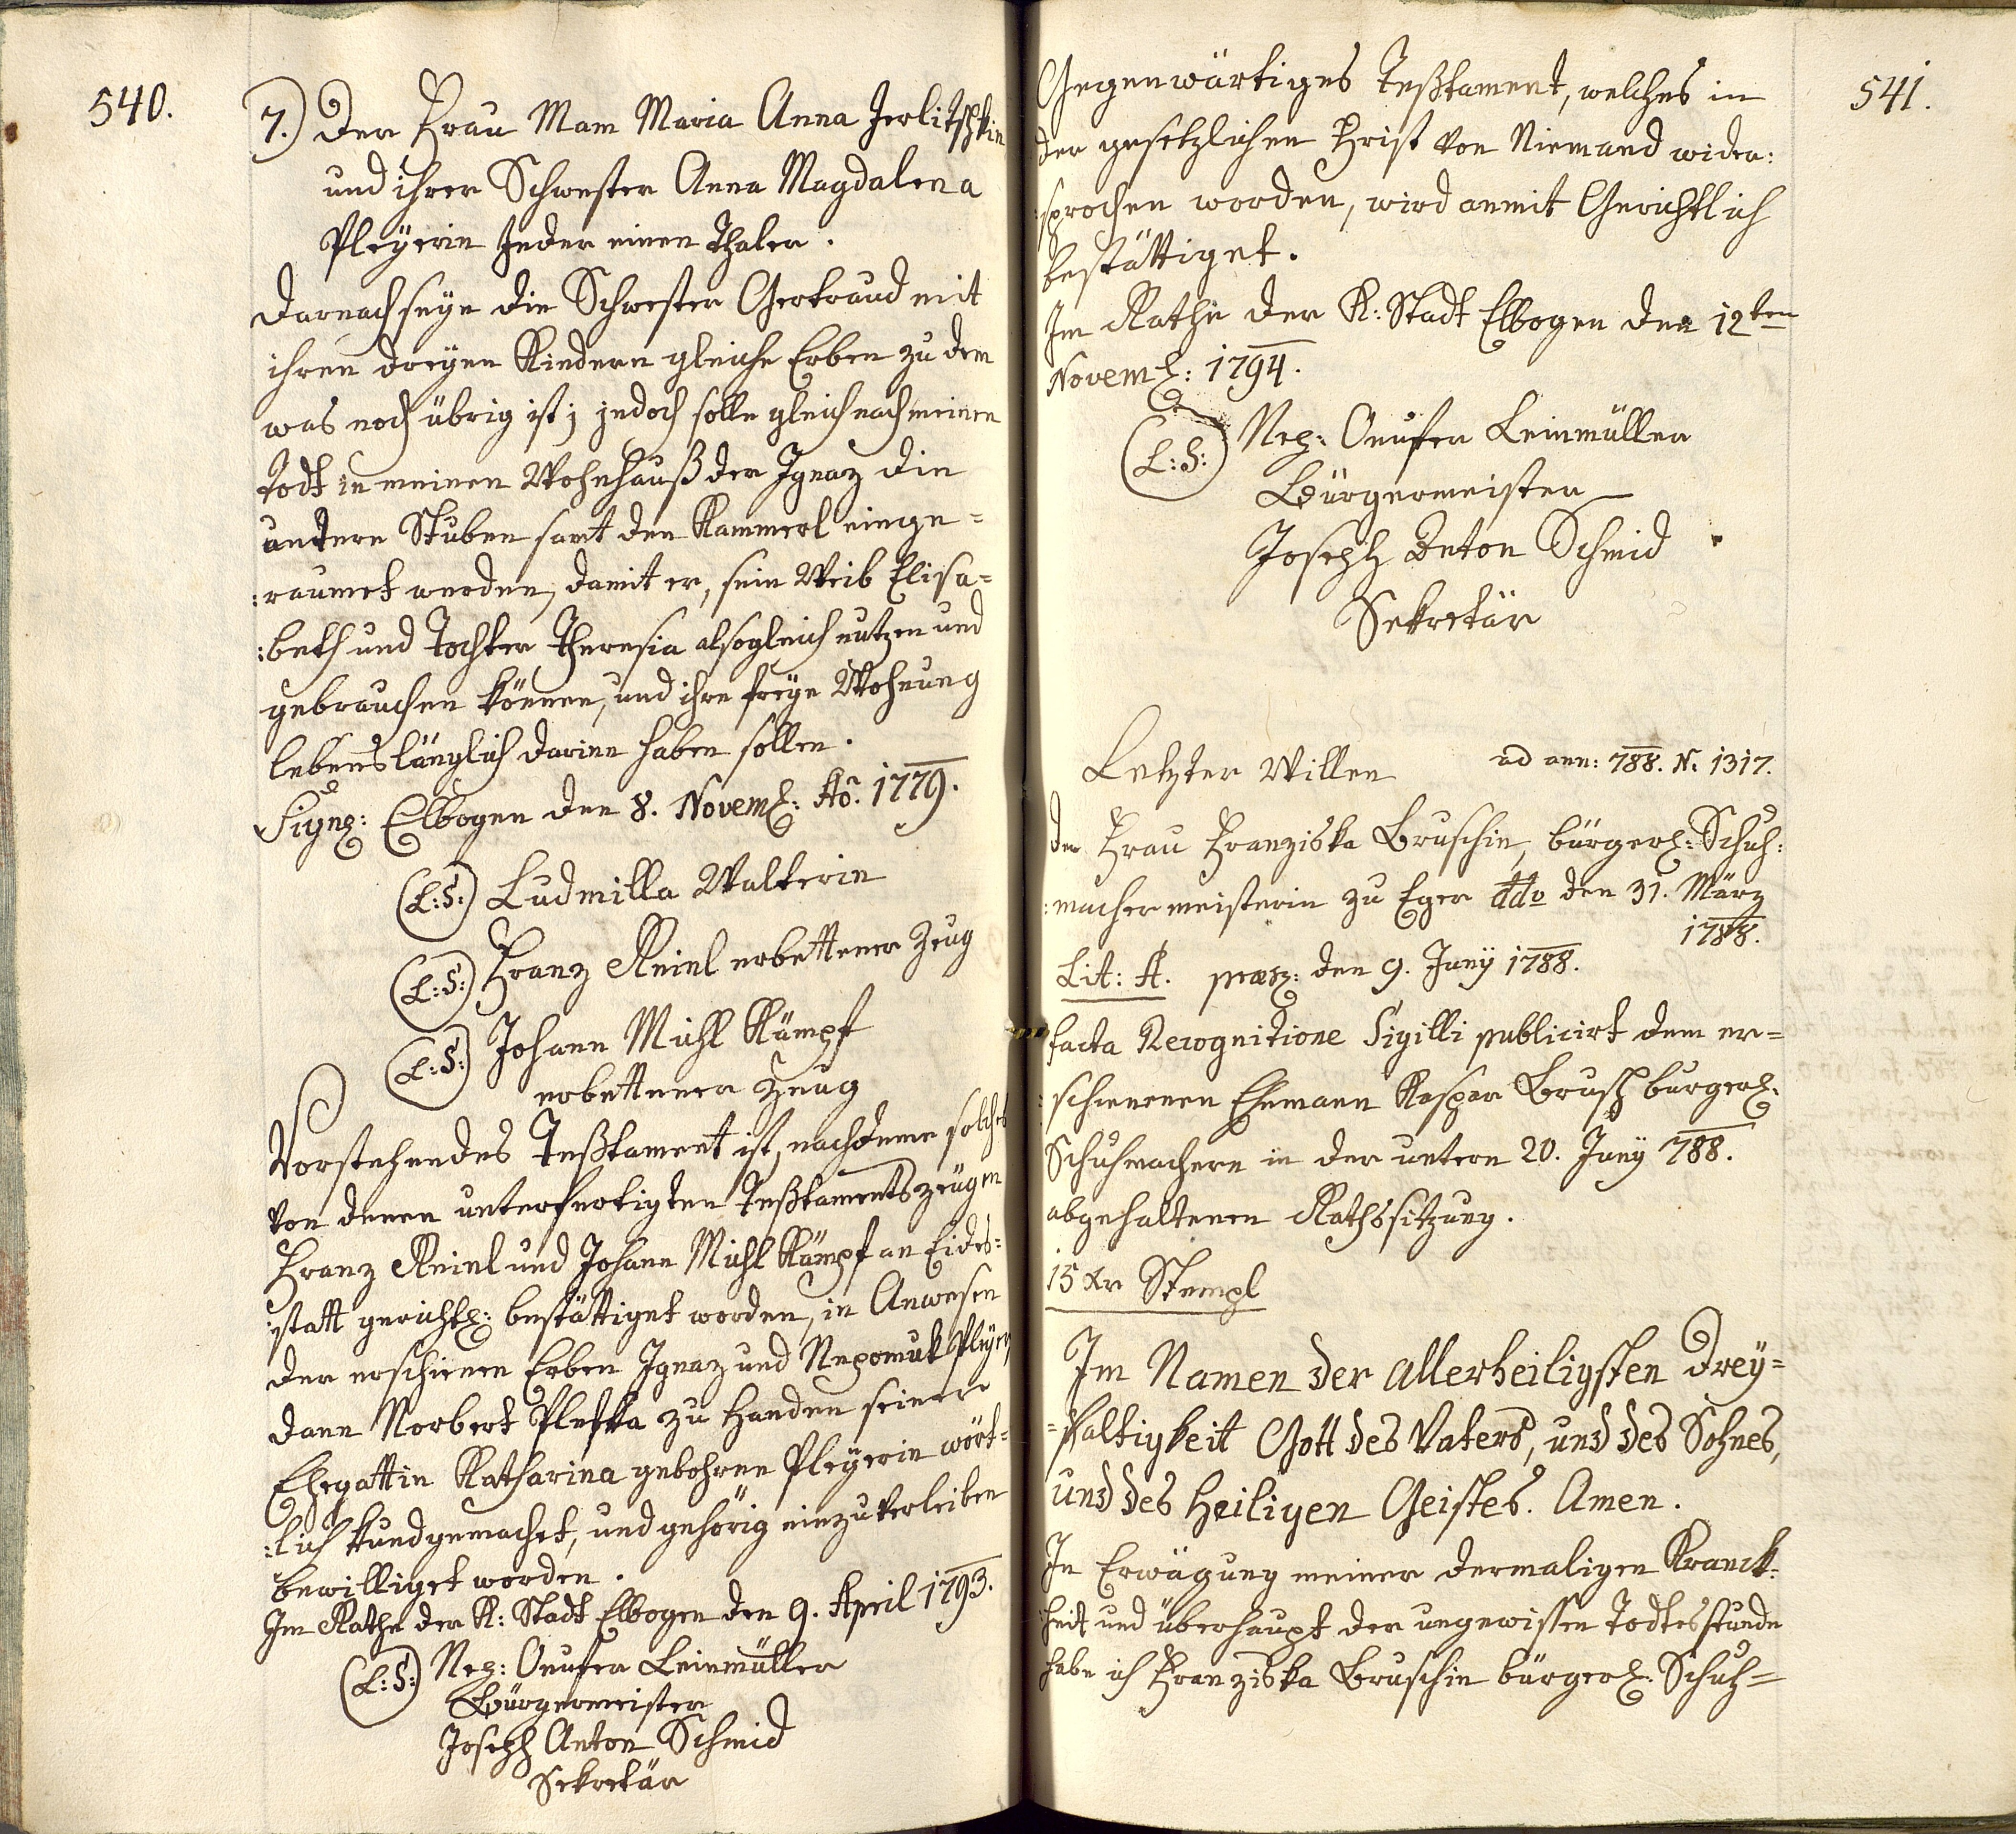 540.
7.) Der Frau Mam Maria Anna Jerlitschkin
und ihrer Schwester Anna Magdalena
Pleÿerin Jeder einen Thaler.
Darnach seÿe die Schwester Gertraud mit
ihren dreÿen Kindern gleiche Erben zu dem
was noch übrig ist; jedoch solle gleich nach meinen
Todt in meinen Wohnhauß der Ignaz die
untere Stuben samt den Kammerl einge=
:raumet werden, damit er, sein Weib Elisa=
:beth und Tochter Theresia alsogleich nutzen und
gebrauchen können, und ihre freÿe Wohnung
lebenslänglich darinn haben sollen.
Sign: Elbogen den 8. Novem: Aõ. 1779.
(L:S:) Ludmilla Walterin
(L:S:) Franz Reinl erbettener Zeug
(L:S:) Johann Michl Kämpf
erbettener Zeug
Vorstehendes Teßtament ist, nachdeme solches
von denen unterfertigten Teßtamentszeügen
Franz Reinl und Johann Michl Kämpf an Eides=
:statt gerichtl: bestättiget worden, in Anwesen
der erschienen Erben Ignaz und Nepomuk Pleÿer,
dann Norbert Pletzka zu Handen seiner
Ehegattin Katharina gebohrne Pleÿerin wört=
:lich kundgemachet, und gehörig einzuverleiben
bewilliget worden.
Im Rathe der K: Stadt Elbogen den 9. April 1793.
(L:S:) Nep: Onufer Leinmüller
Bürgermeister
Joseph Anton Schmid
Sekretär
541.
Gegenwärtiges Teßtament, welches in
der gesetzlichen Frist von Niemand wider:
:sprochen worden, wird anmit Gerichtlich
bestättiget.
Im Rathe der K: Stadt Elbogen den 12ten
Novem: 1794.
(L:S:) Nep: Onufer Leinmüller
Bürgermeister
Joseph Anton Schmid
Sekretär
Letzter Willen ad ann: 788. N. 1317.
der Frau Franziska Bruschin, bürgerl: Schuh:
:machermeisterin zu Eger ddo den 31. März
1788.
Lit: A. præs: den 9. Junÿ 1788.
facta Recognitione Sigilli publicirt dem er=
:schienenen Ehemann Kaspar Brusch burgerl:
Schuhmachern in der untern 20. Junÿ 788.
abgehaltenen Rathssitzung.
15 Xr Stempl
Im Namen der allerheiligsten Dreÿ=
=faltigkeit Gott des Vaters, und des Sohnes,
und des Heiligen Geistes. Amen.
In Erwägung meiner dermaligen Kranck:
:heit und überhaupt der ungewissen Todtesstunde
habe ich Franziska Bruschin bürgerl: Schuh=